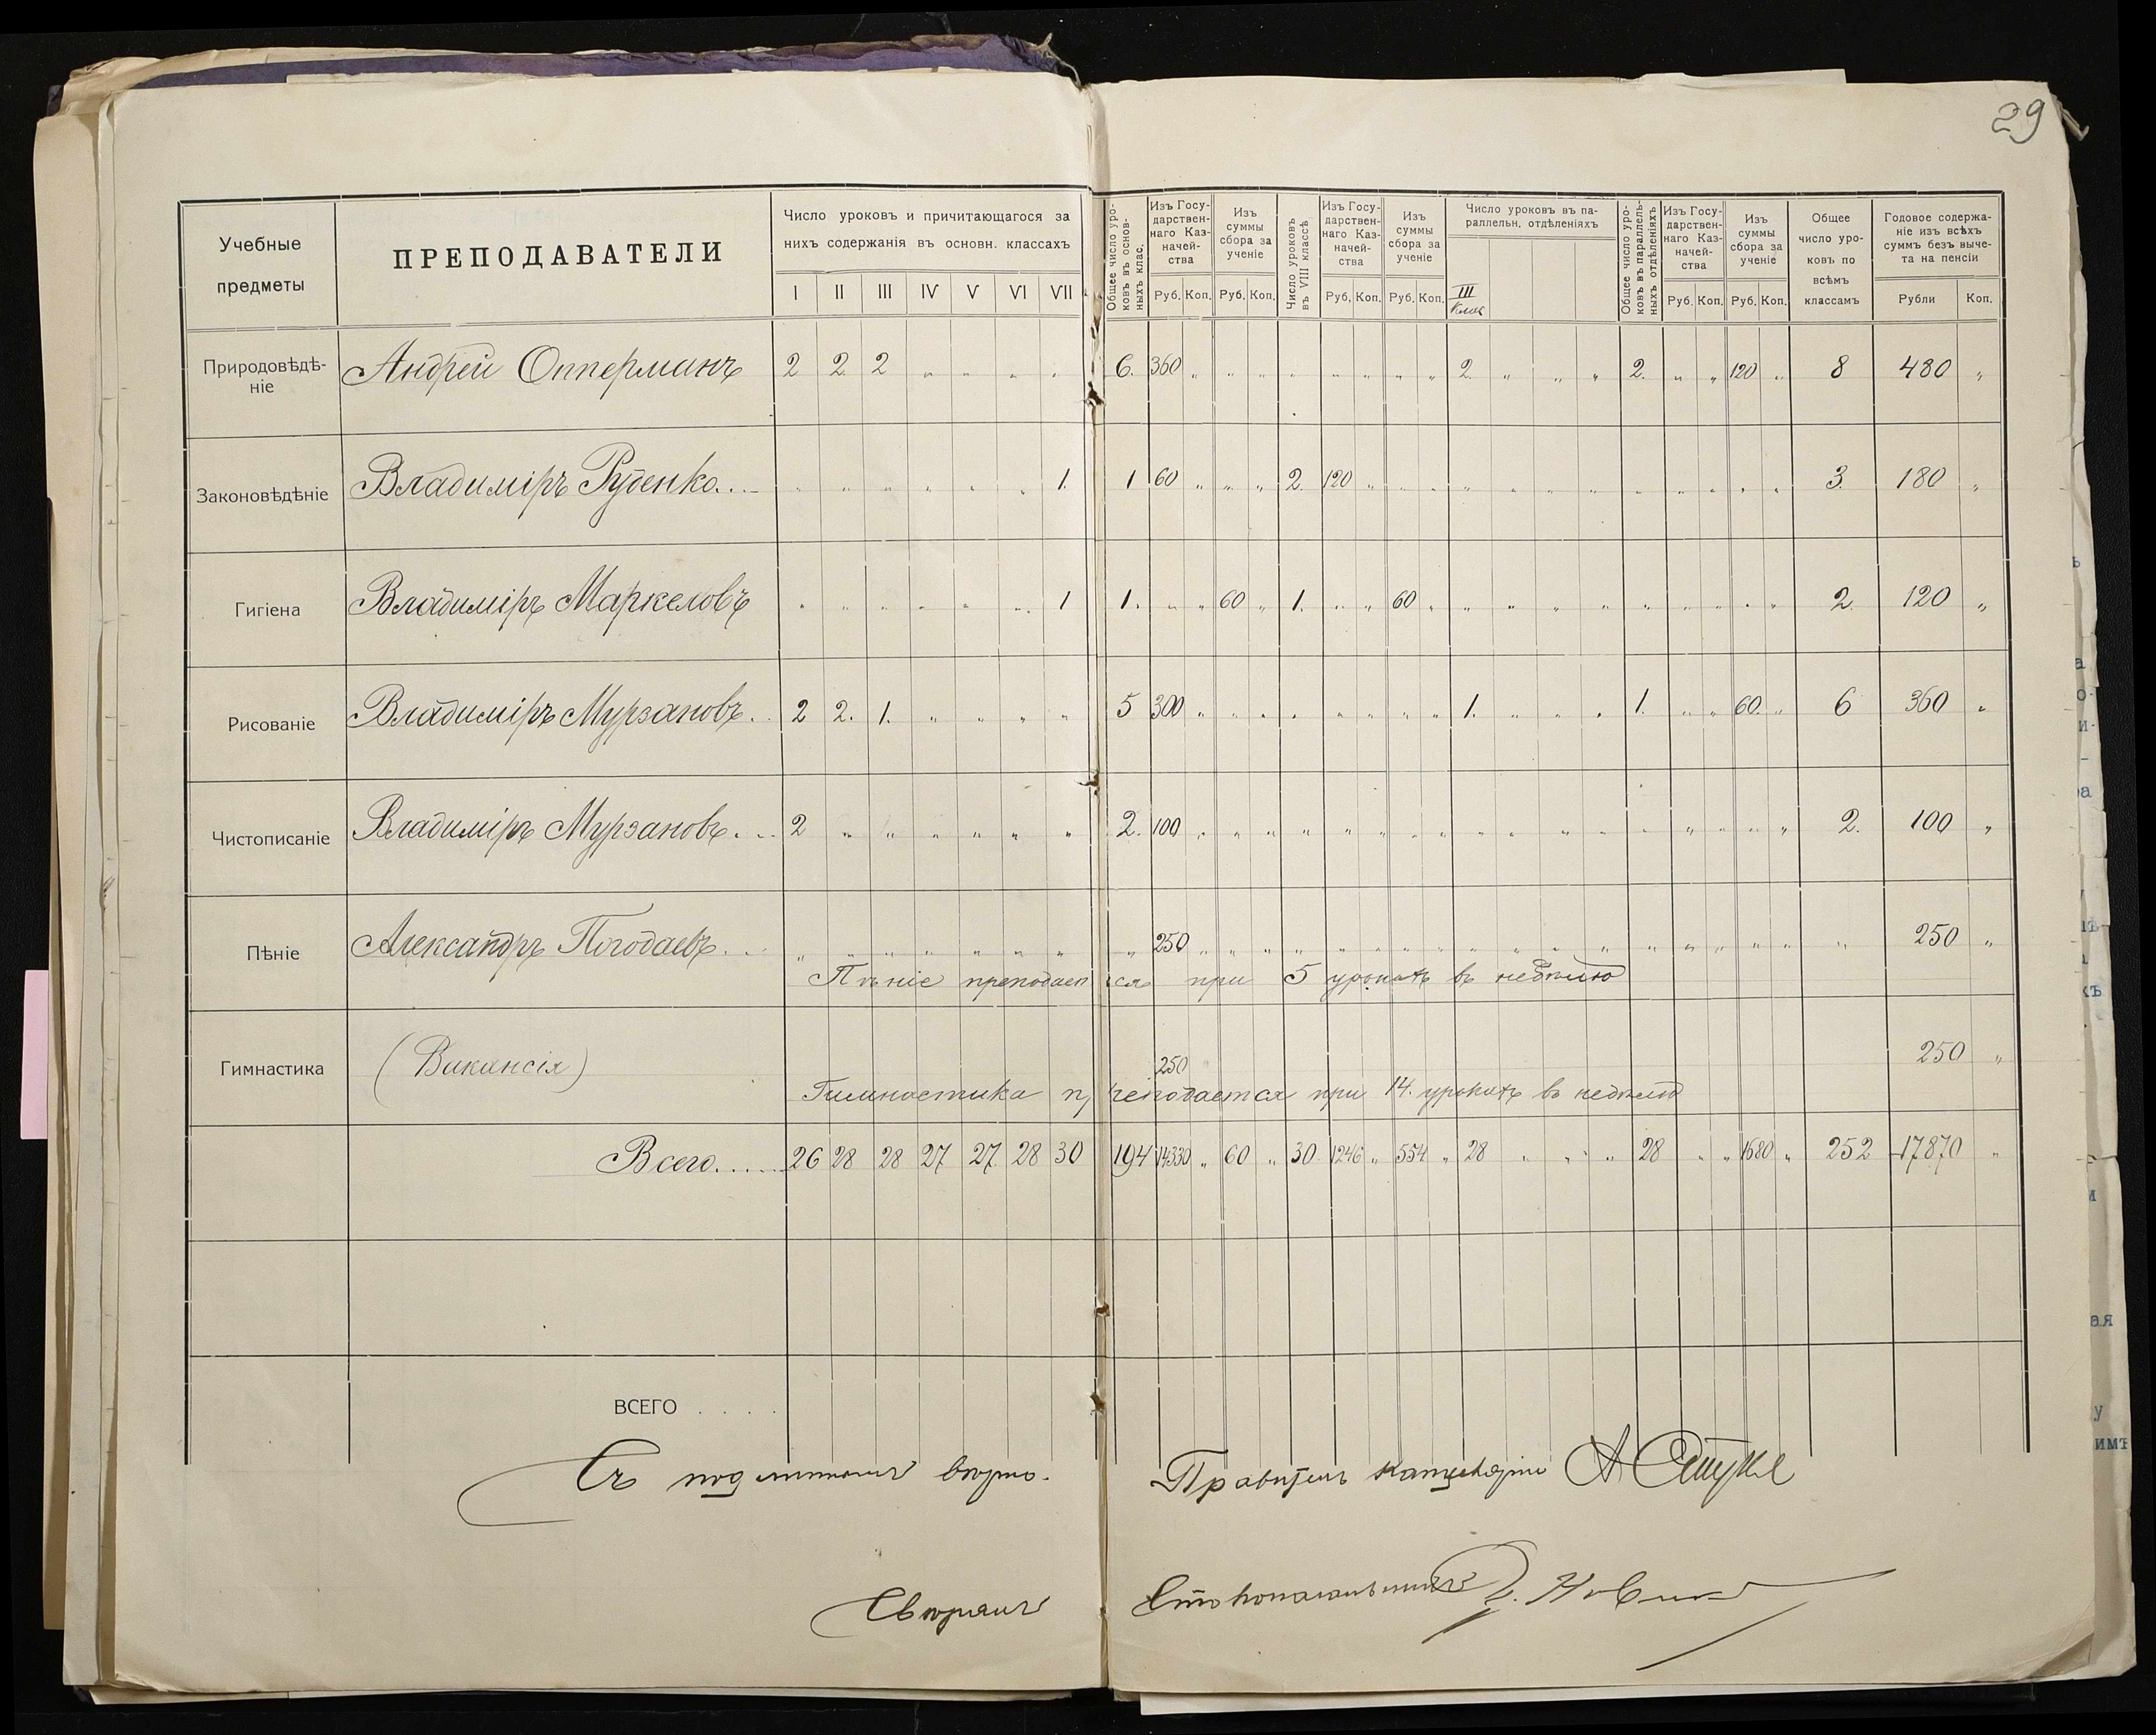 29
Учебные предметы
ПРЕПОДАВАТЕЛИ
Число уроковъ и причитающагося за
нихъ содержанія въ основн. классахъ
I II III IV V VI VII
Общее число уро-
ковъ въ основ-
ныхъ клас.
Изъ Госу-
дарствен-
наго Каз-
начей-
ства
Руб. Коп.
Изъ
суммы
сбора за
ученіе
Руб. Коп.
Число уроковъ
въ VIII классѣ
Изъ Госу-
дарствен-
наго Каз-
начей-
ства
Руб. Коп.
Изъ
суммы
сбора за
ученіе
Руб. Коп.
Число уроковъ въ па-
раллельн. отдѣленіяхъ
III
Клас
Общее число уро-
ковъ въ параллель-
ныхъ отдѣленіяхъ
Изъ Госу-
дарствен-
наго Каз-
начей-
ства
Руб. Коп.
Изъ
суммы
сбора за
ученіе
Руб. Коп.
Общее
число уро-
ковъ по
всѣмъ
классамъ
Годовое содержа-
ніе изъ всѣхъ
суммъ безъ выче-
та на пенсіи
Рубли Коп.
Природовѣдѣ-
ніе
Андрей Опперманъ 2 2 2 „ „ „ „ 6. 360 „ „ „ „ „ „ „ „ 2. „ „ „ 2. „ „ 120 „ 8 480 „
Законовѣдѣніе Владиміръ Руденко... „ „ „ „ „ „ 1. 1 60 „ „ „ 2. 120 „ „ „ „ „ „ „ „ „ „ „ „ 3. 180 „
Гигіена Владиміръ Маркеловъ „ „ „ „ „ „ 1 1. „ „ 60 „ 1. „ „ 60 „ „ „ „ „ „ „ „ „ „ 2. 120 „
Рисованіе Владиміръ Мурзановъ.. 2 2. 1. „ „ „ „ 5 300 „ „ „ „ „ „ „ „ 1. „ „ „ 1. „ „ 60. „ 6 360 „
Чистописаніе Владиміръ Мурзановъ... 2 „ „ „ „ „ „ 2. 100 „ „ „ „ „ „ „ „ „ „ „ „ „ „ „ „ „ 2. 100 „
Пѣніе Александръ Погодаевъ... „ „ „ „ „ „ „ „ 250 „ „ „ „ „ „ „ „ „ „ „ „ „ „ „ „ „ „ 250 „
Пѣніе преподается при 5 урокахъ въ недѣлю
Гимнастика (Вакансія) 250 250 „
Гимнастика преподается при 14. урокахъ въ недѣлю
Всего...... 26 28 28 27 27 28 30 194 14330 „ 60 „ 30 1246 „ 554 „ 28 „ „ „ 28 „ „ 1680 „ 252 17870 „
ВСЕГО . . . .
Съ подлиннымъ вѣрно.
Правитель канцеляріи А
Свѣрялъ
Столоначальникъ